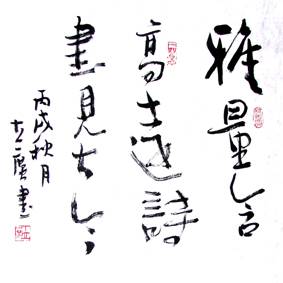 雅量含
高遠詩
書見古今
丙戌秋月
廣書